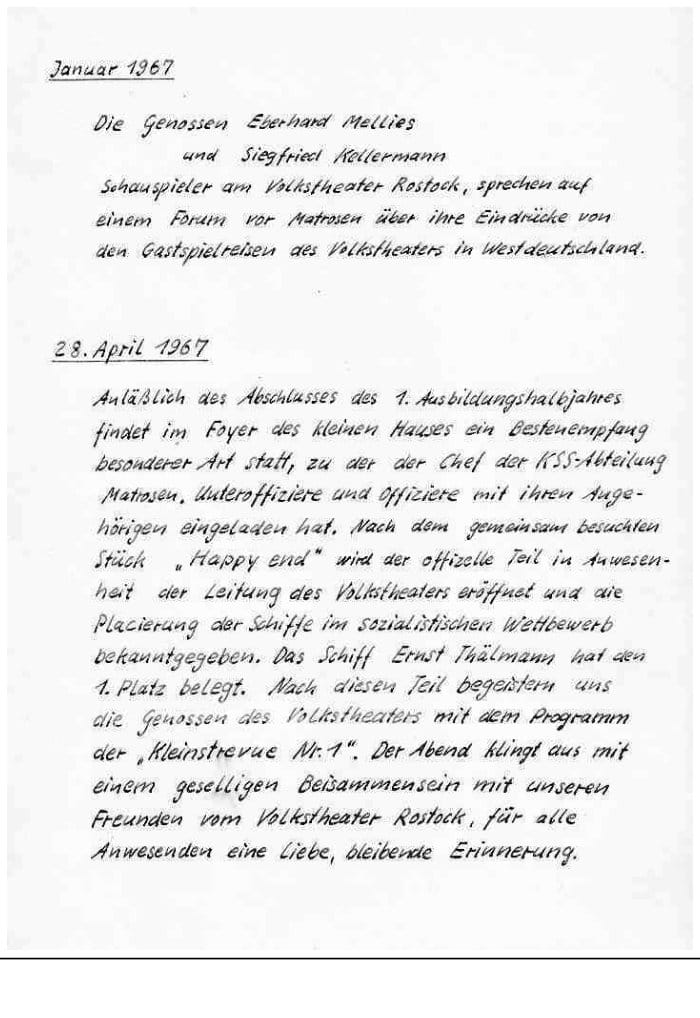 Januar 1967
Die Genossen Eberhard Mellies
und Siegfried Kellermann
Schauspieler am Volkstheater Rostock, sprechen auf
einem Forum vor Matrosen über ihre Eindrücke von
den Gastspielreisen des Volkstheaters in Westdeutschland.
28. April 1967
Anläßlich des Abschlusses des 1. Ausbildungshalbjahres
findet im Foyer des kleinen Hauses ein Bestenempfang
besonderer Art statt, zu der der Chef der KSS-Abteilung
Matrosen, Unteroffiziere und Offiziere mit ihren Ange-
hörigen eingeladen hat. Nach dem gemeinsam besuchten
Stück „Happy end" wird der offizelle Teil in Anwesen-
heit der Leitung des Volkstheaters eröffnet und die
Placierung der Schiffe im sozialistischen Wettbewerb
bekanntgegeben. Das Schiff Ernst Thälmann hat den
1. Platz belegt. Nach diesen Teil begeistern uns
die Genossen des Volkstheaters mit dem Programm
der „Kleinstrevue Nr. 1". Der Abend klingt aus mit
einem geselligen Beisammensein mit unseren
Freunden vom Volkstheater Rostock, für alle
Anwesenden eine liebe, bleibende Erinnerung.